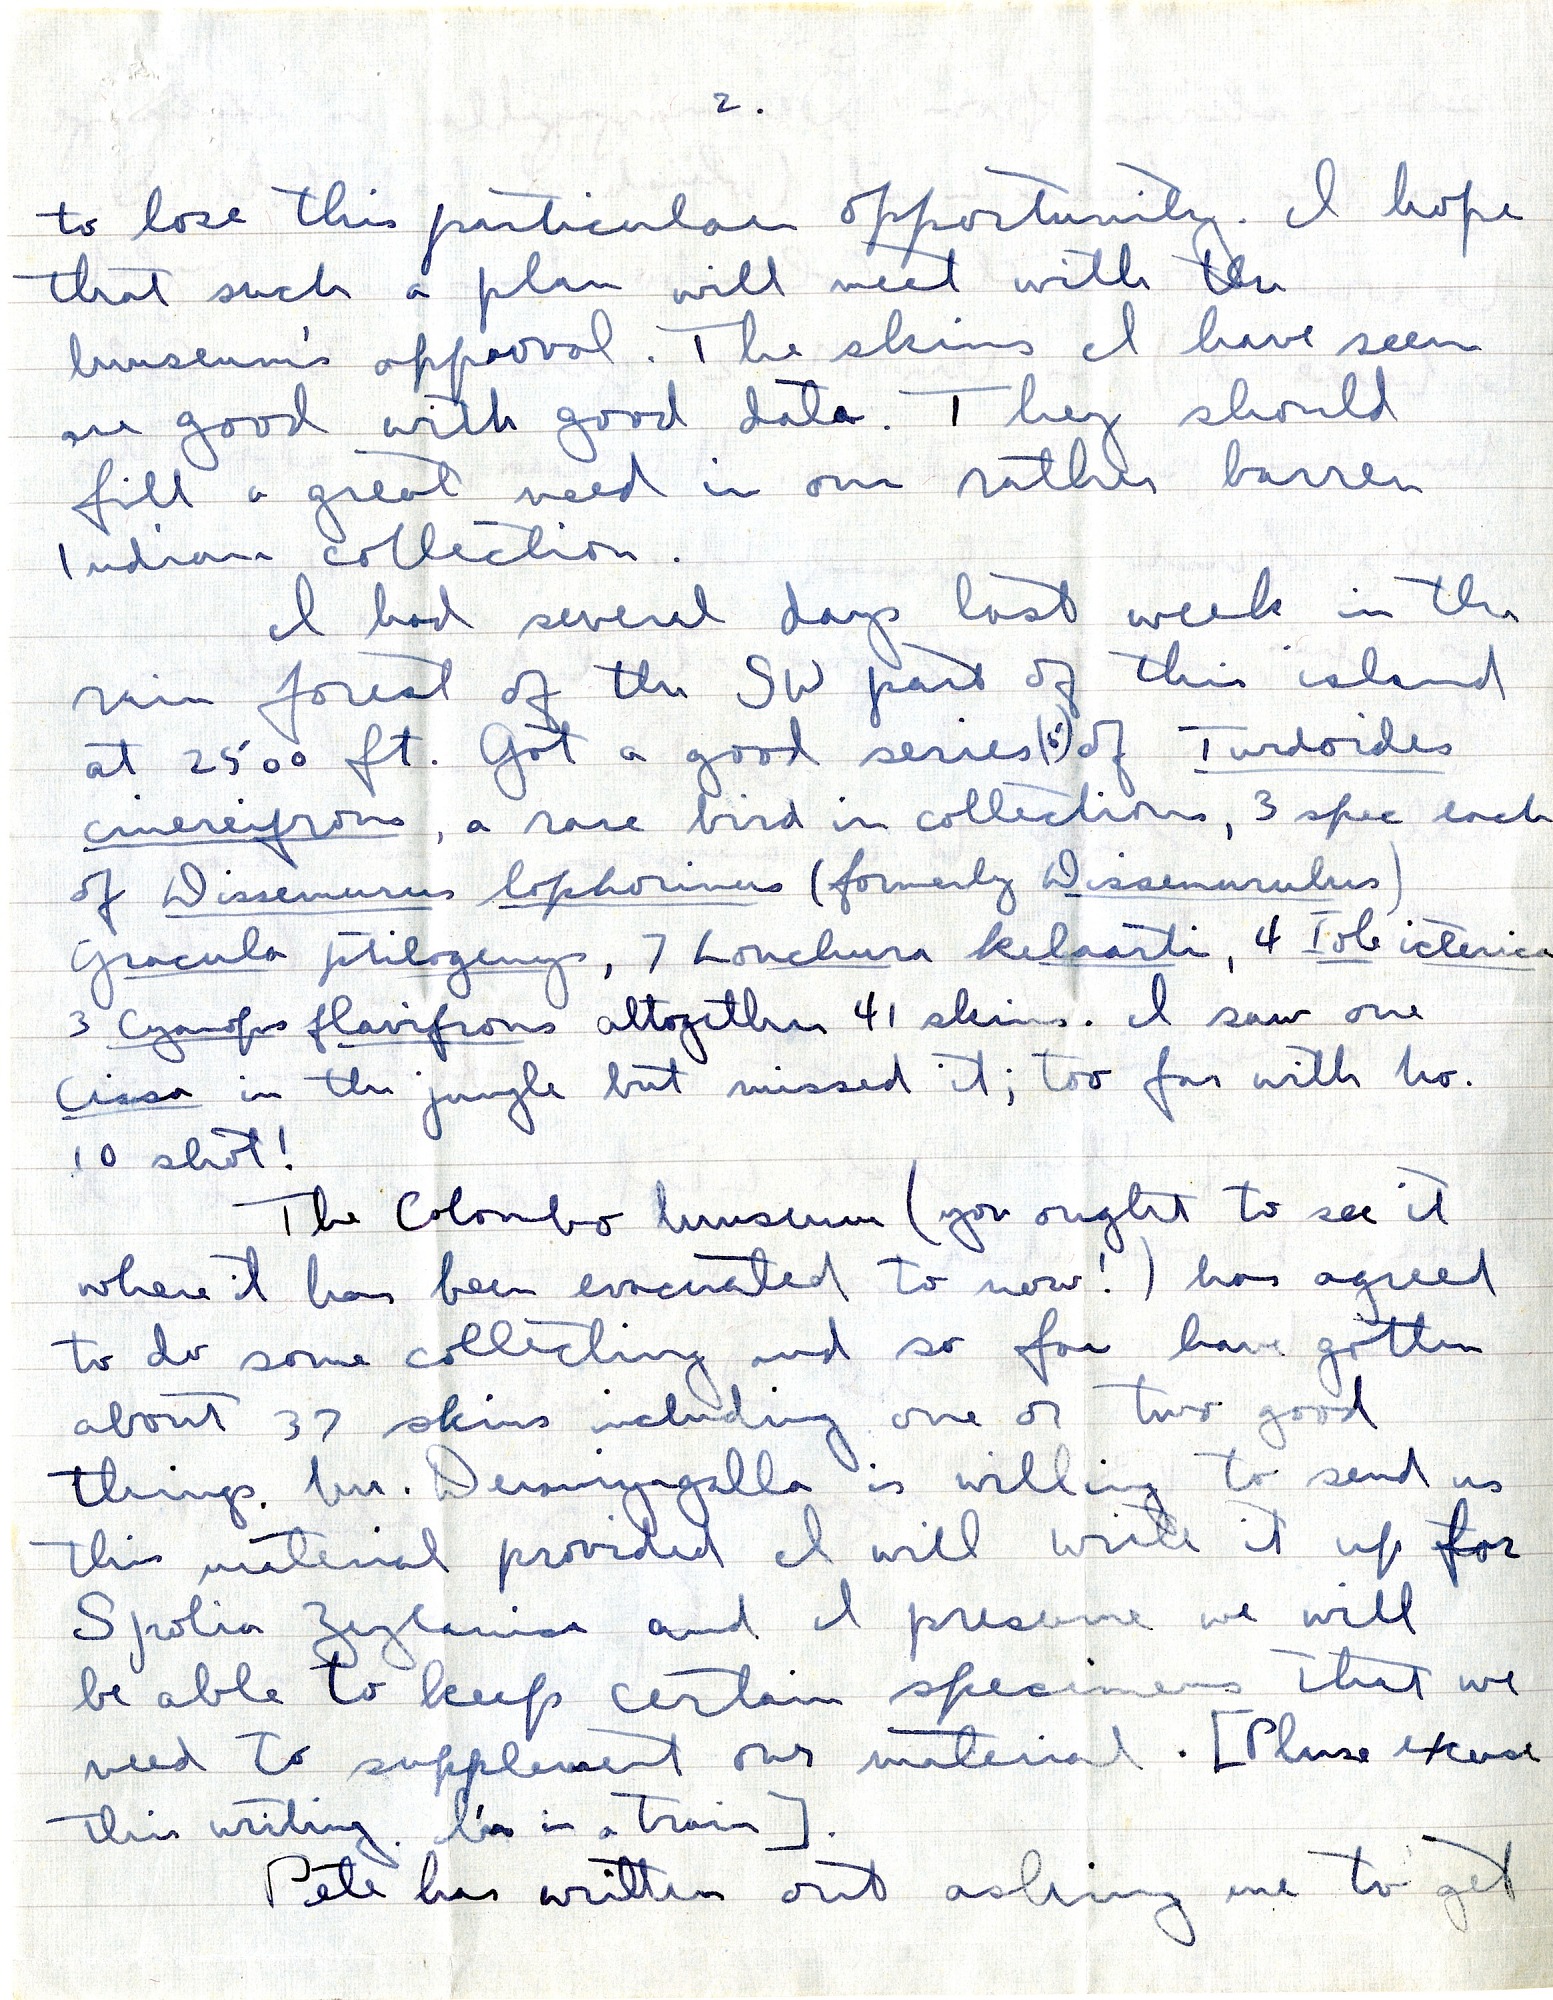 2.
to lose this particular opportunity. I hope
that such a plan will meet with the
Museum's approval. The skins I have seen
are good with good data. They should
fill a great need in our rather barren
Indian collection.
I had several days last week in the
rain forest of the SW part of this island
at 2500 ft. Got a good series (5) of Turdoides
cinereifrons, a rare bird in collections, 3 spec each
of Dissemurus lophorinus (formerly Dissemurulus)
Gracula ptilogenys, 7 Lonchura kelaarti, 4 Iole icterica
3 Cyanops flavifrons altogether 41 skins. I saw one
Cissa in the jungle but missed it; too far with No.
10 shot!
The Colombo Museum (you ought to see it
where it has been evacuated to now!) has agreed
to do some collecting and so far have gotten
about 37 skins including one or two good
things. Mr. Deraniyagalla is willing to send us
this material provided I will write it up for
Spolia Zeylanica and I presume we will
be able to keep certain specimens that we
need to supplement our material. [Please excuse
this writing. I'm in a train].
Pete has written out asking me to get